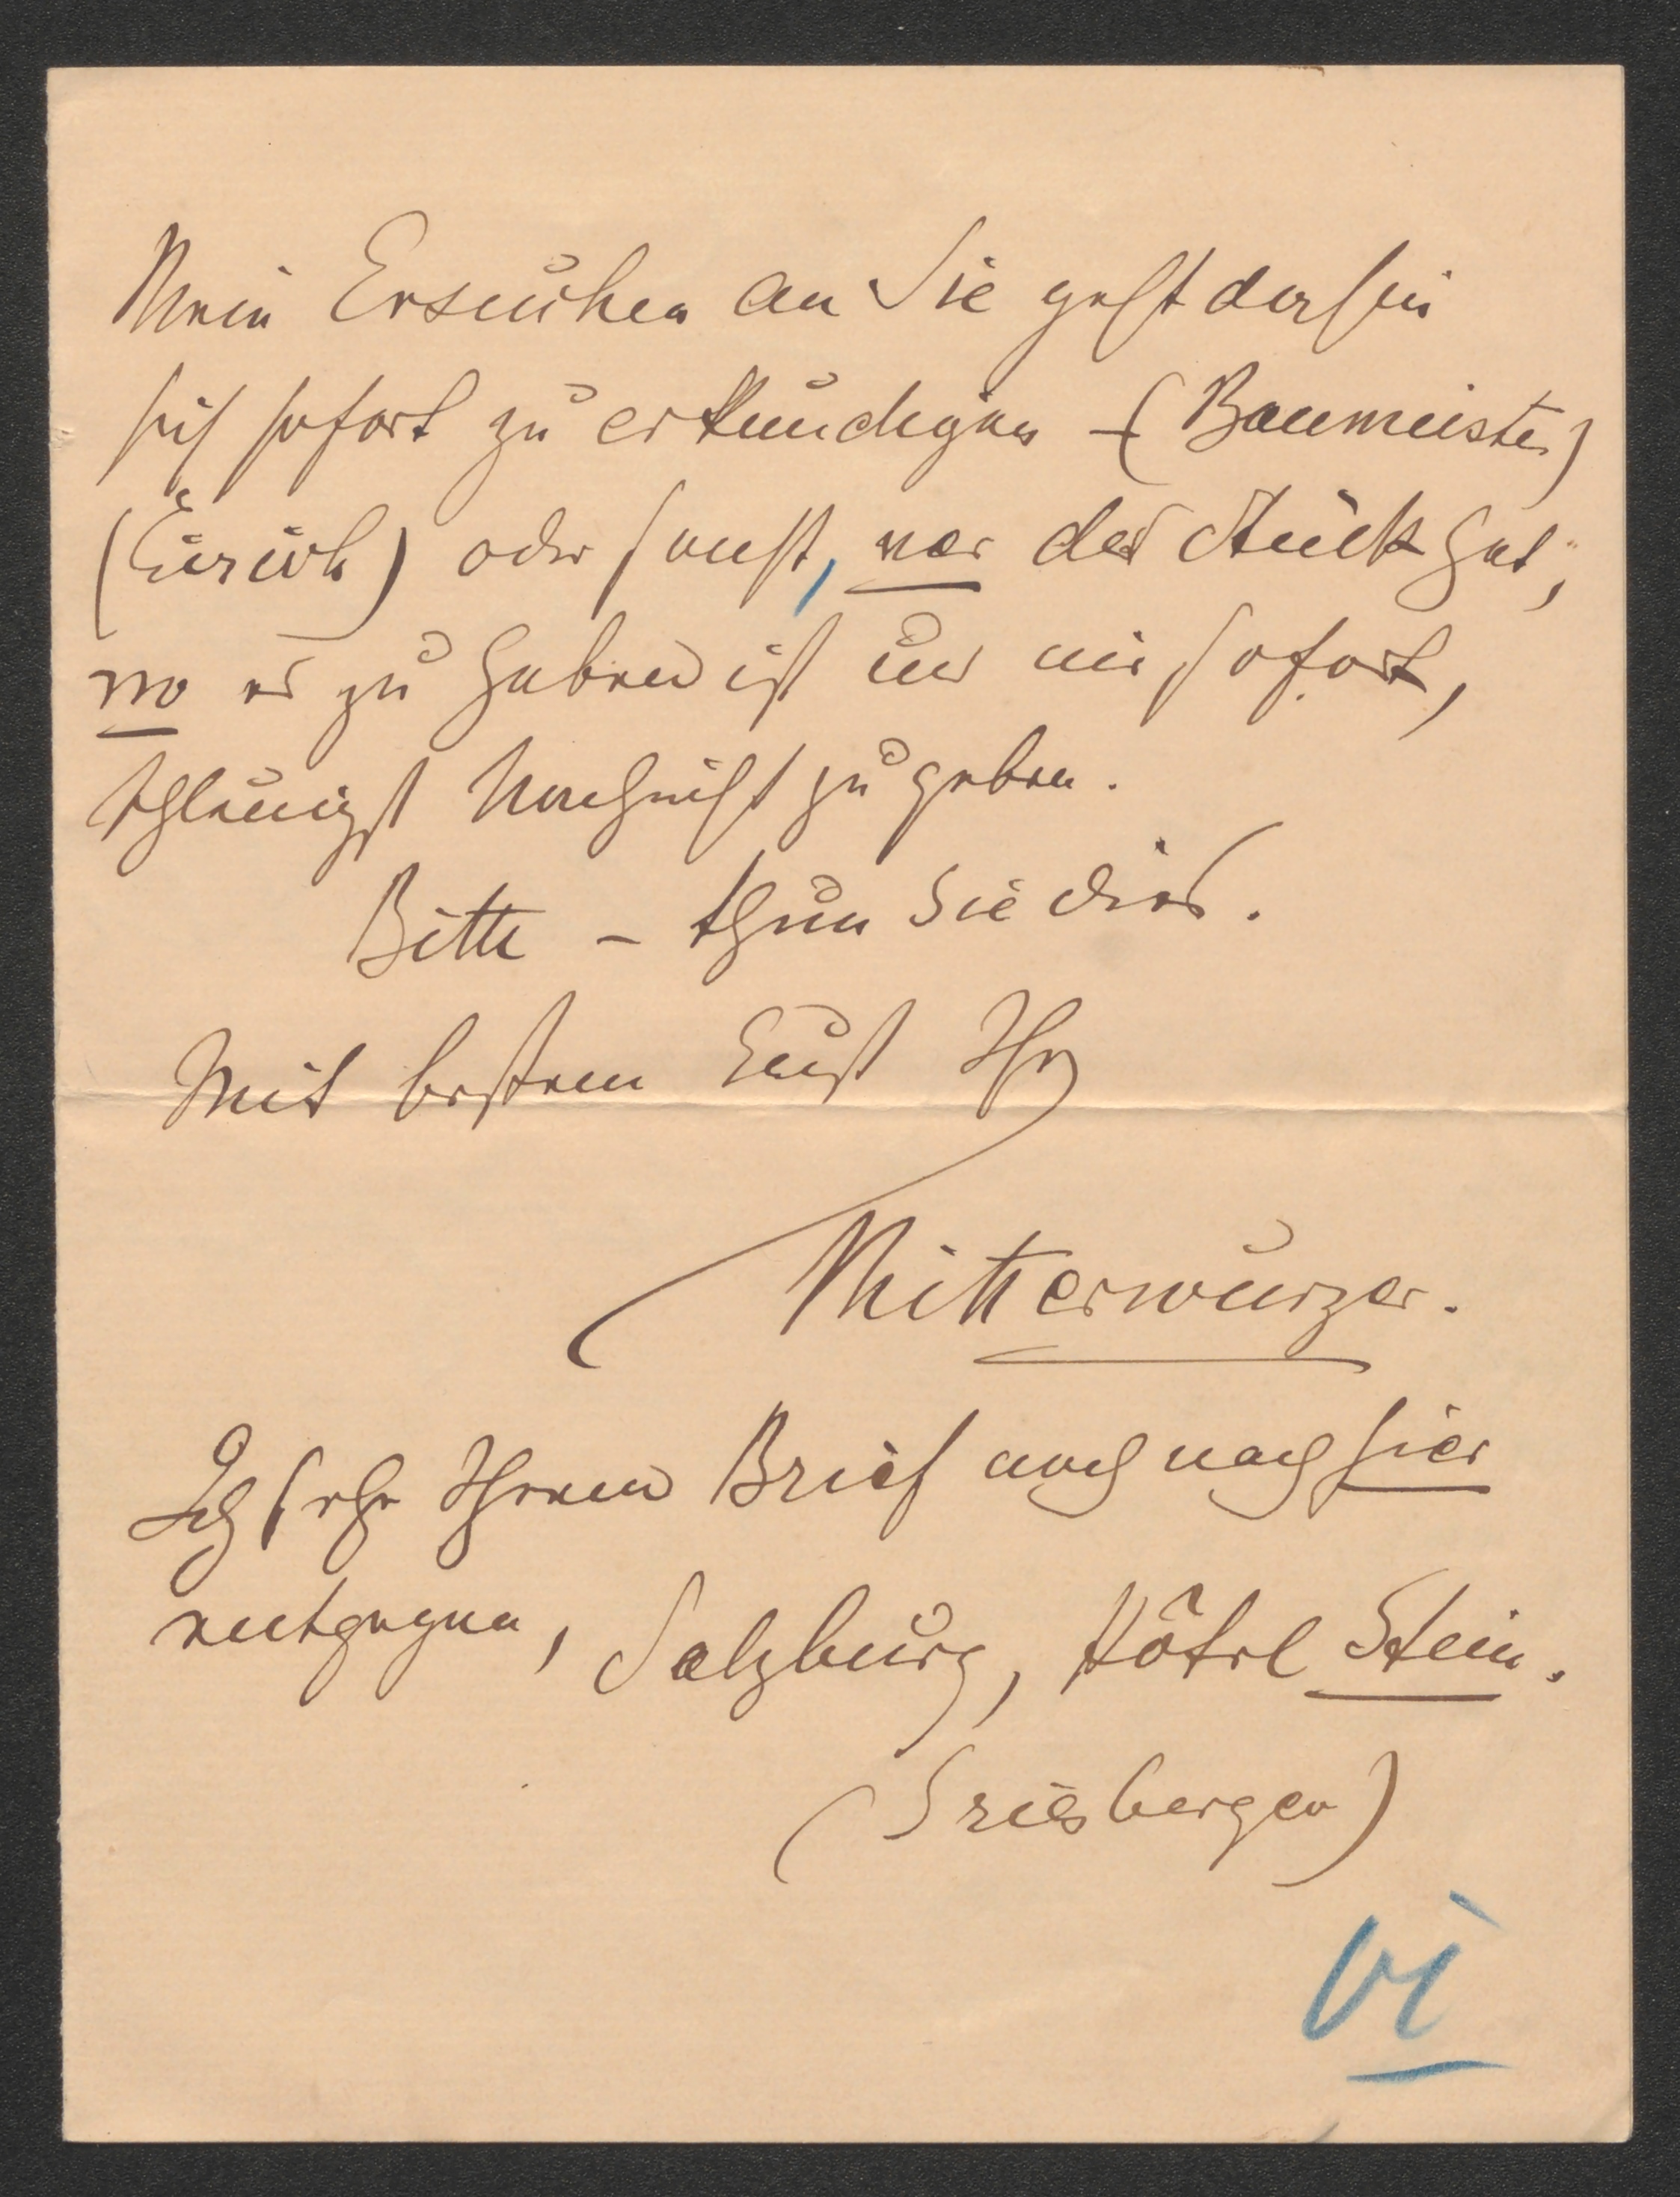 Mein Ersuchen an Sie geht dahin
sich sofort zu erkundigen – (Baumeister)
oder sonst, wer das Stück hat,
wo es zu haben ist und mir sofort,
schleunigst Nachricht zu geben.
Bitte – thun Sie dies.
Mit bestem Gruß Ihr
Mitterwurzer.
Ich sehe Ihrem Brief noch nach hier
entgegen, Salzburg, Hôtel Stein.
VI